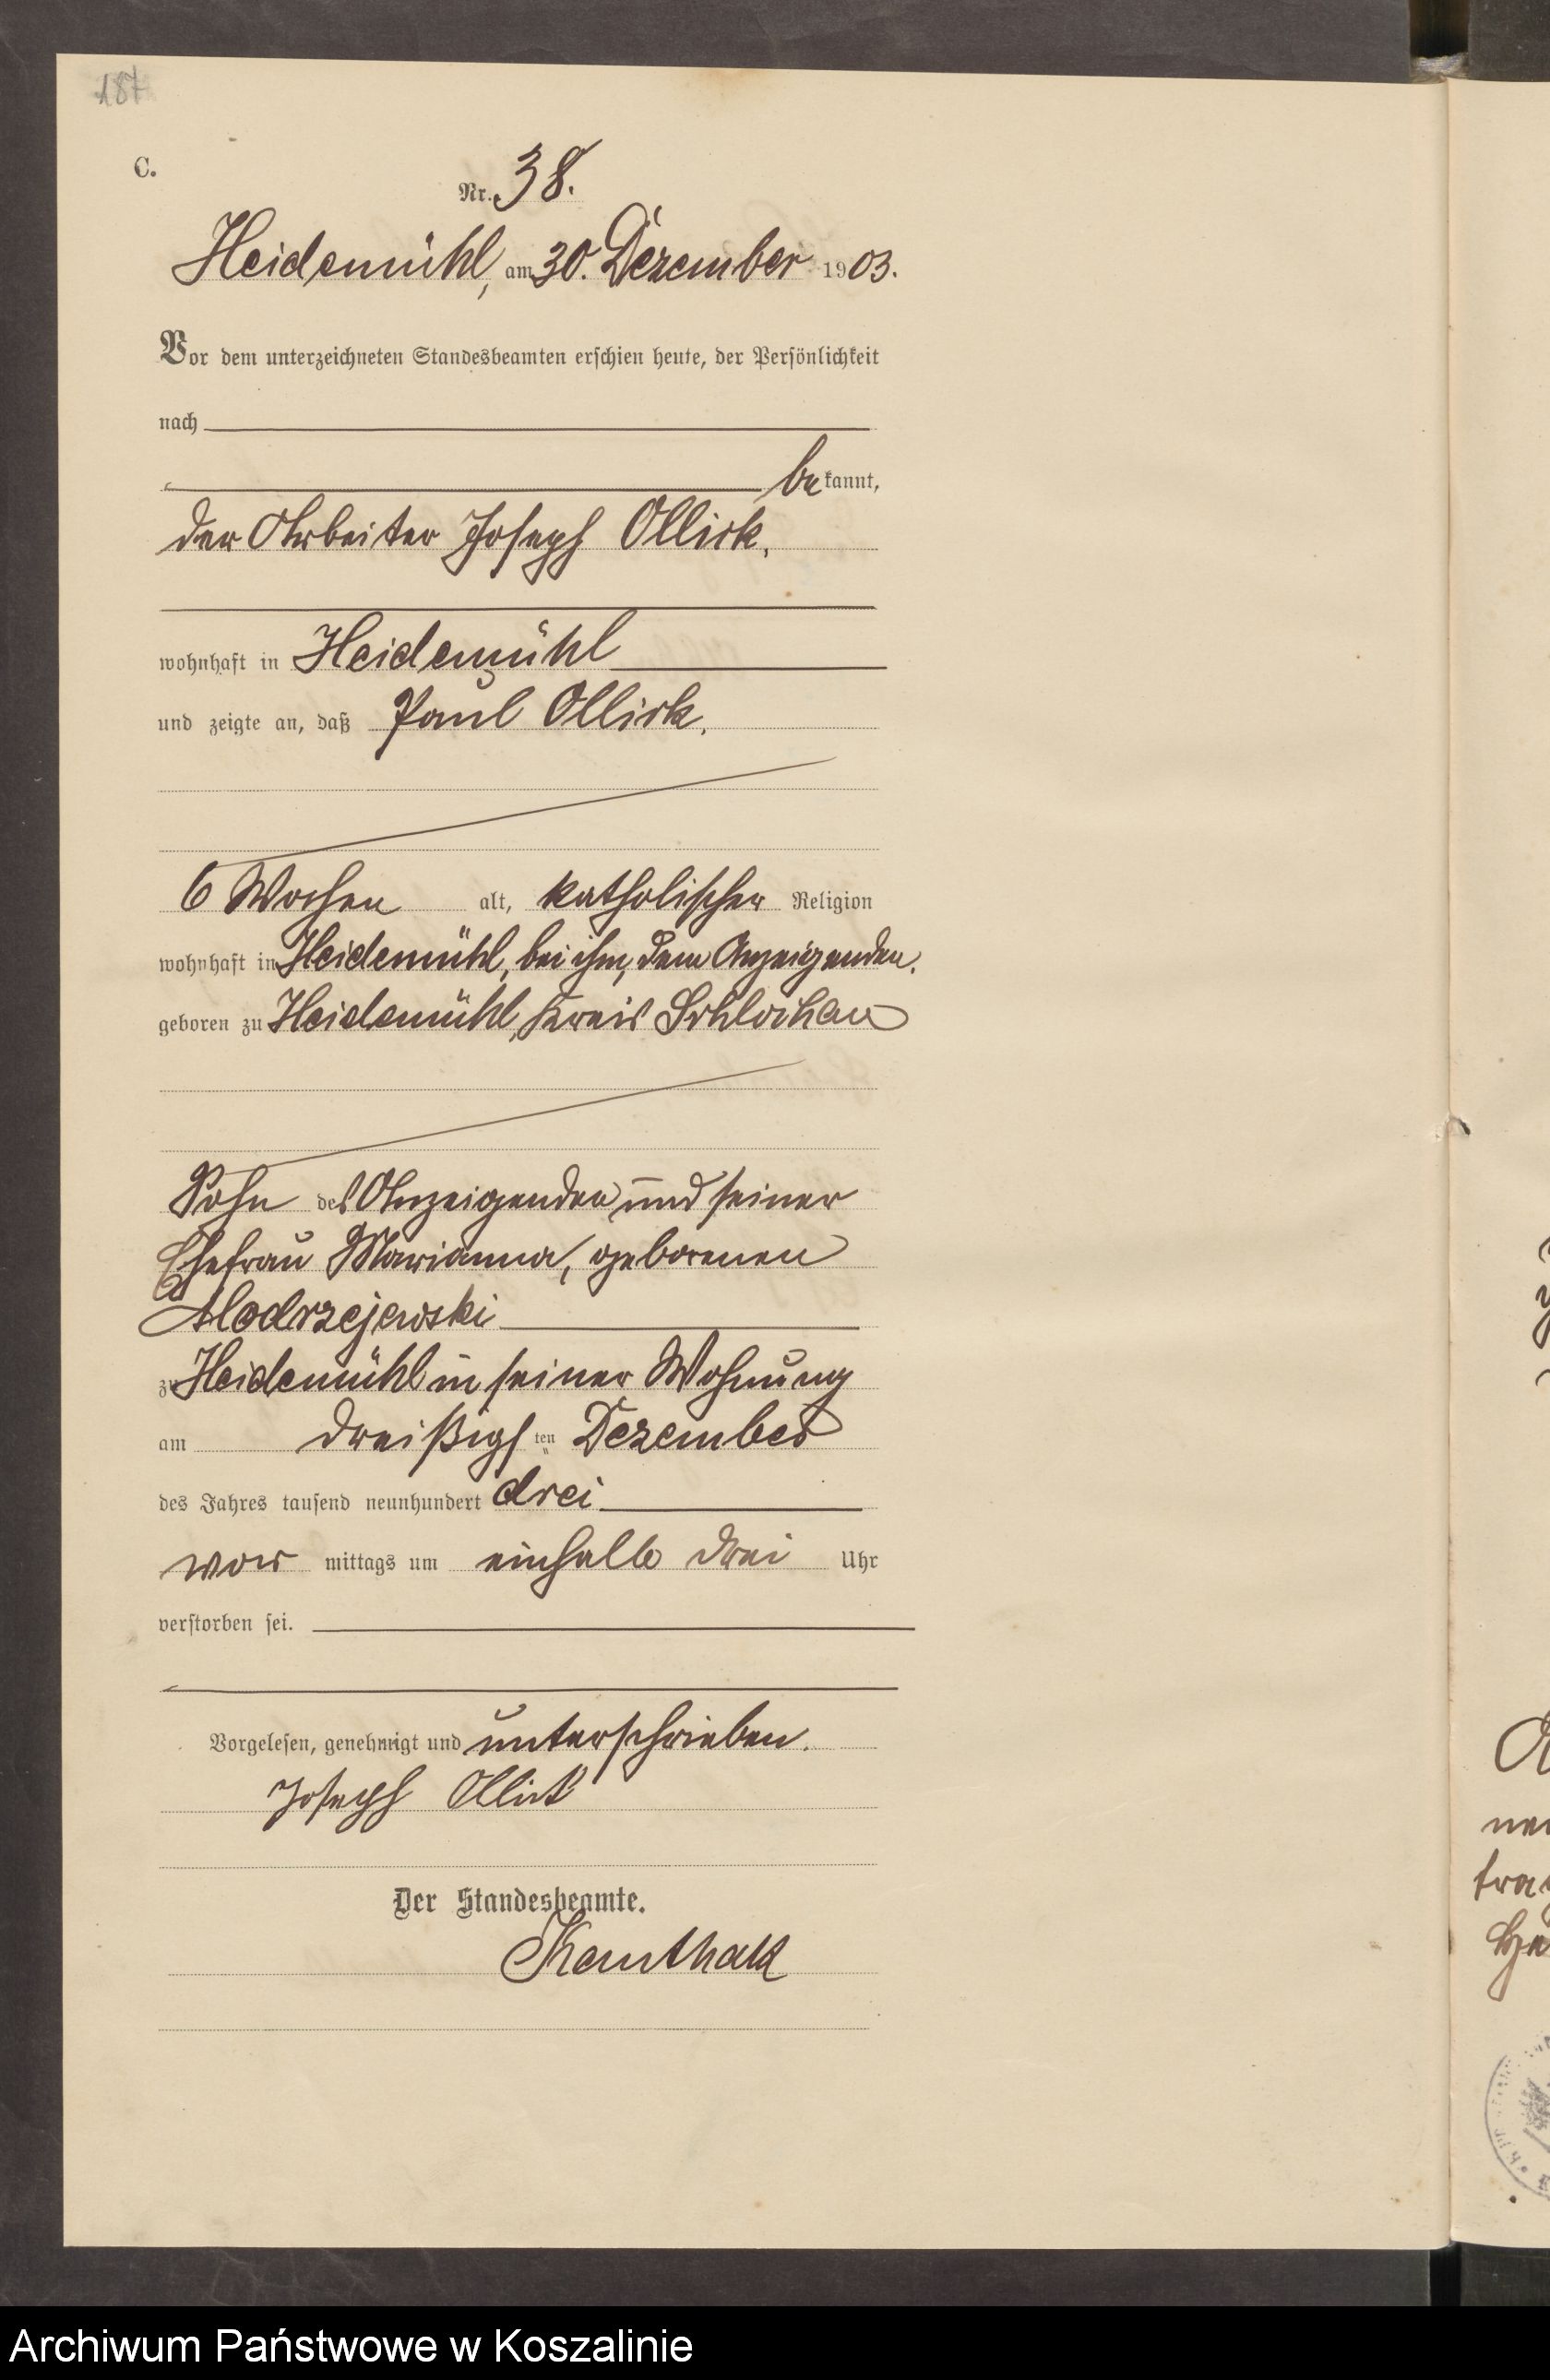 187
C.
Nr. 38.
Heidemühl, am 30. Dezember 1903.
Vor dem unterzeichneten Standesbeamten erschien heute, der Persönlichkeit
nach
bekannt,
der Arbeiter Joseph Ollick,
wohnhaft in Heidemühl
und zeigte an, daß Paul Ollick,
6 Wochen alt, katholischer Religion
wohnhaft in Heidemühl, bei ihm, dem Anzeigenden,
geboren zu Heidemühl, Kreis Schlochau
Sohn des Anzeigenden und seiner
Ehefrau Marianna, geborenen
Modrzejewski
zu Heidemühl in seiner Wohnung
am dreißigsten Dezember
des Jahres tausend neunhundert drei
vormittags um einhalb drei Uhr
verstorben sei.
Vorgelesen, genehmigt und unterschrieben.
Joseph Ollick
Der Standesbeamte.
Kauthak
Archiwum Państwowe w Koszalinie